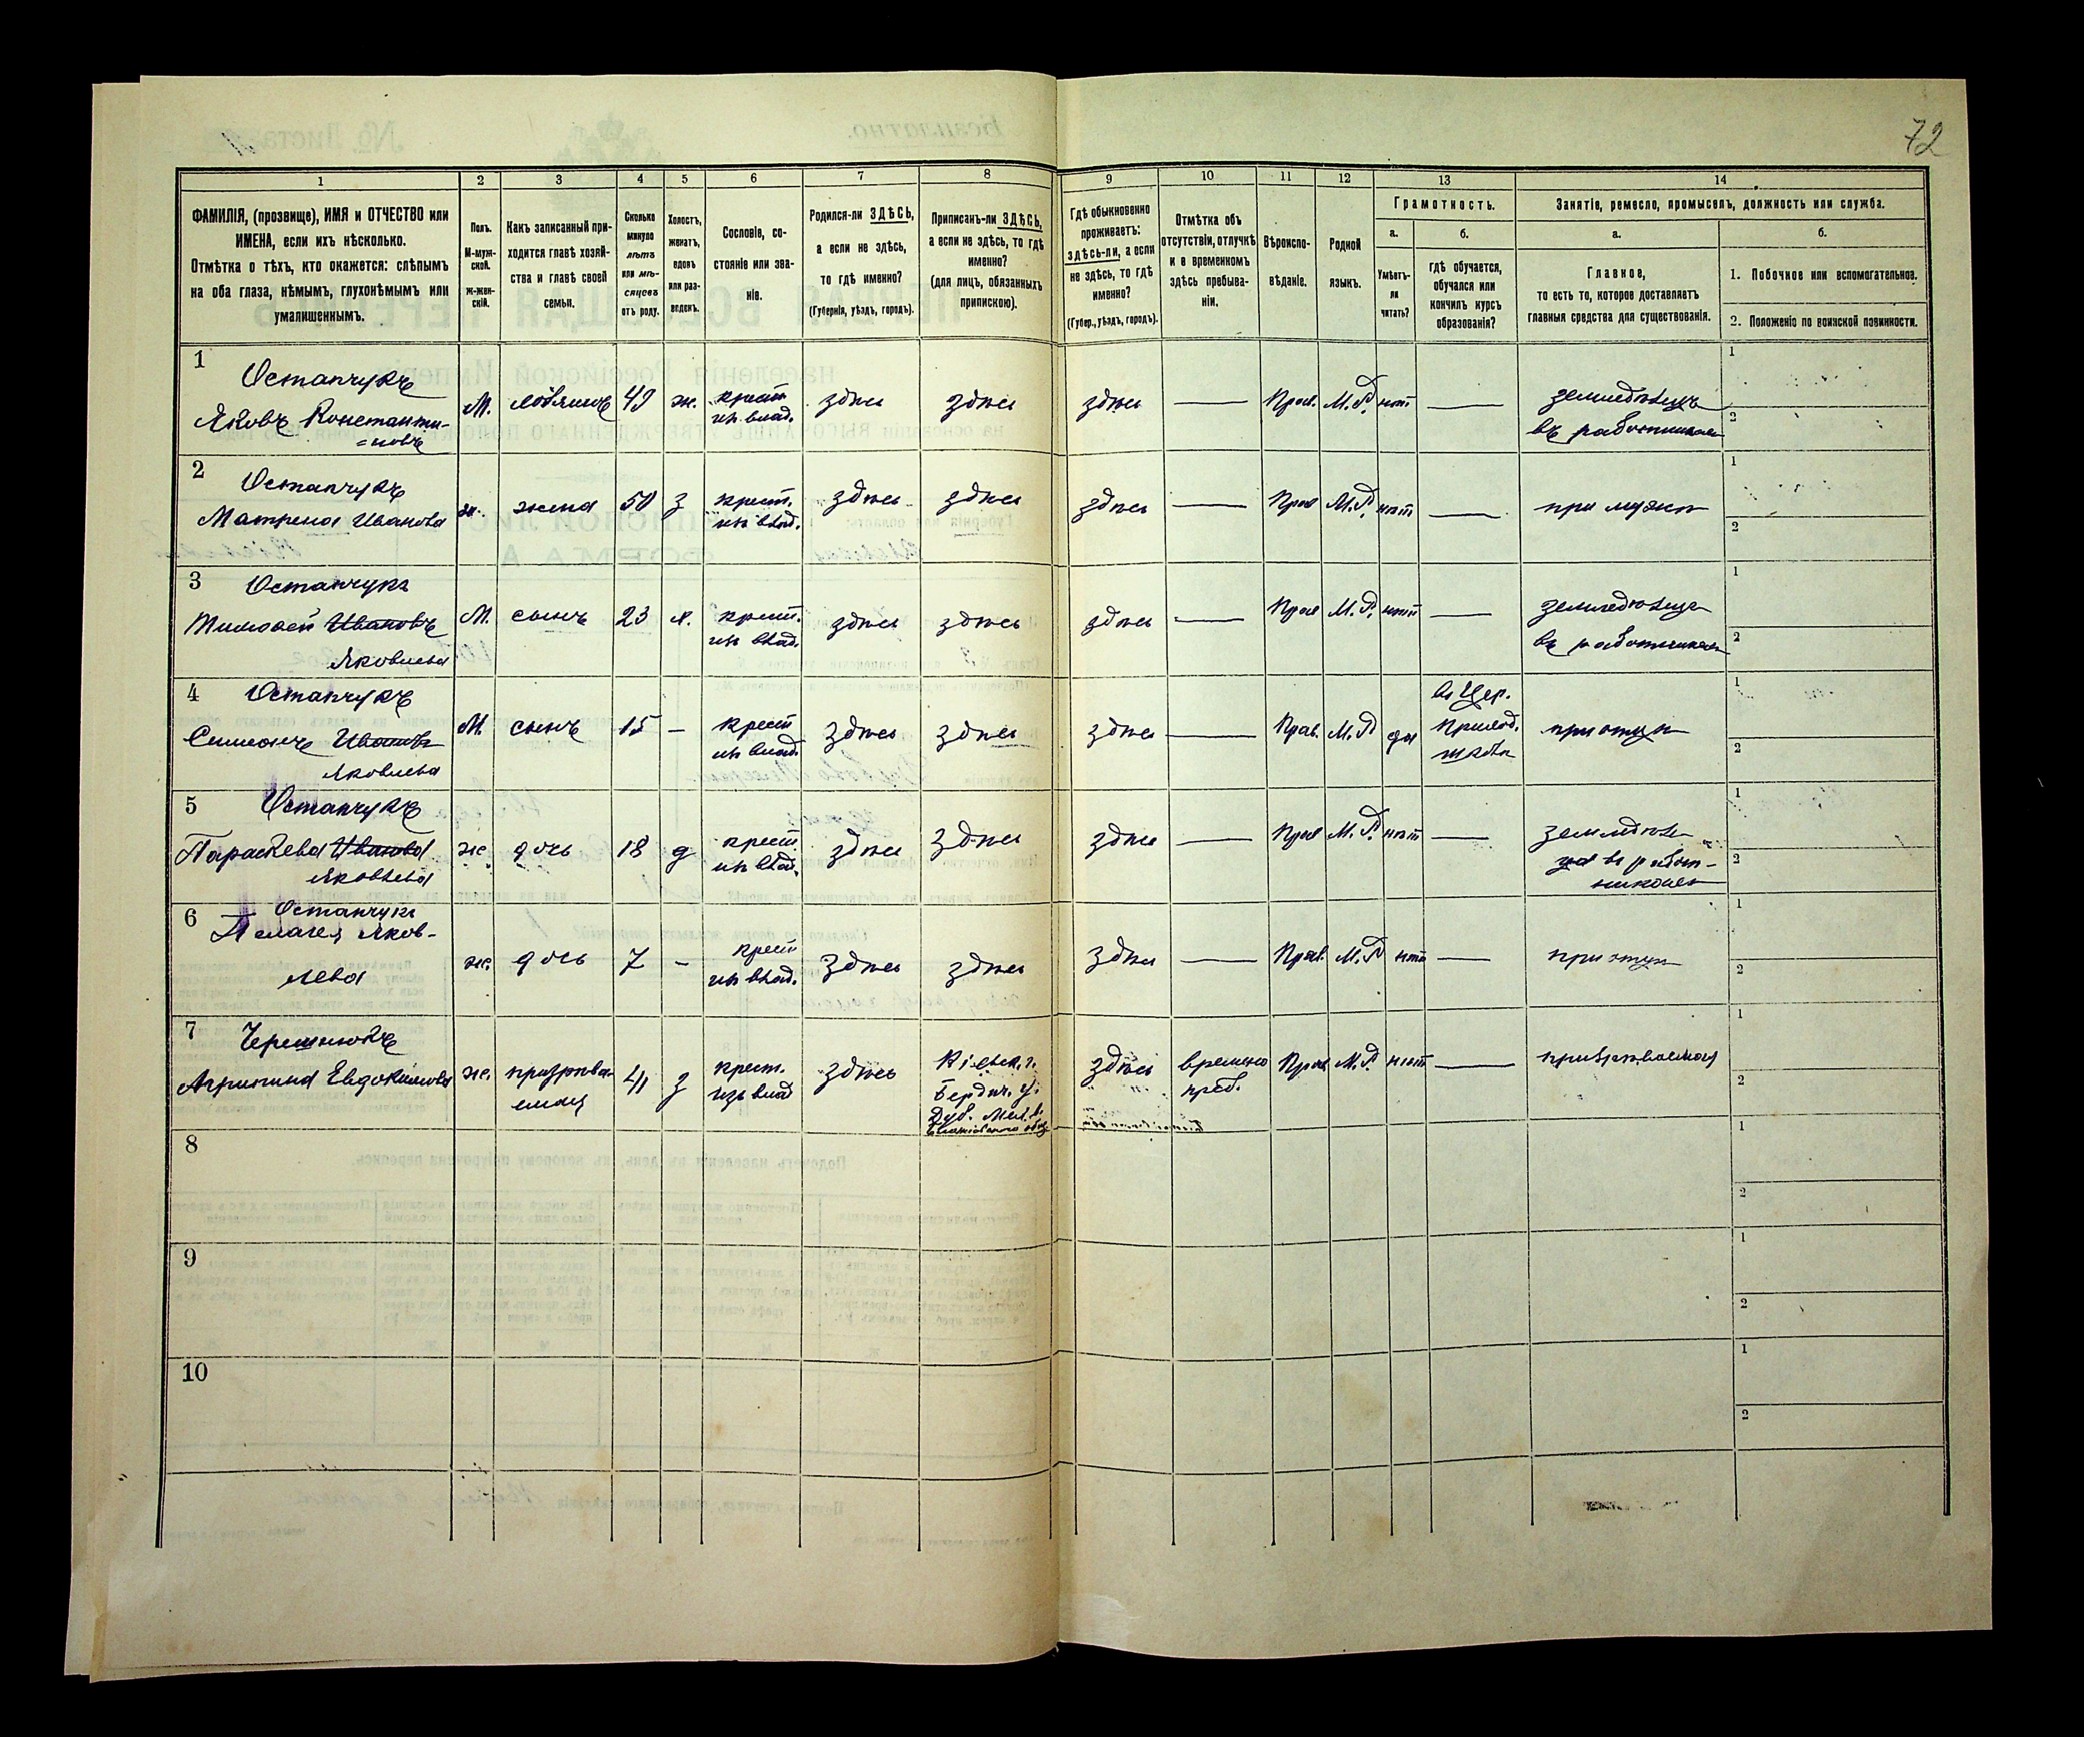 72
1 2 3 4 5 6 7 8 9 10 11 12 13 14
ФАМИЛІЯ, (прозвище), ИМЯ и ОТЧЕСТВО или
ИМЕНА, если ихъ нѣсколько.
Отмѣтка о тѣхъ, кто окажется: слѣпымъ
на оба глаза, нѣмымъ, глухонѣмымъ или
умалишеннымъ.
Полъ.
М-муж-
ской.
Ж-жен-
скій.
Какъ записанный при-
ходится главѣ хозяй-
ства и главѣ своей
семьи.
Сколько
минуло
лѣтъ
или мѣ-
сяцевъ
отъ роду.
Холостъ,
женатъ,
вдовъ
или раз-
веденъ.
Сословіе, со-
стояніе или зва-
ніе.
Родился-ли ЗДѢСЬ,
а если не здѣсь,
то гдѣ именно?
(Губернія, уѣздъ, городъ).
Приписанъ-ли ЗДѢСЬ,
а если не здѣсь, то гдѣ
именно?
(для лицъ, обязанныхъ
припискою).
Гдѣ обыкновенно
проживаетъ:
здѣсь-ли, а если
не здѣсь, то гдѣ
именно?
(Губер., уѣздъ, городъ).
Отмѣтка объ
отсутствіи, отлучкѣ
и о временномъ
здѣсь пребыва-
ніи.
Вѣроиспо-
вѣданіе.
Родной
языкъ.
Грамотность.
а.
Умѣетъ-
ли
читать?
б.
гдѣ обучается,
обучался или
кончилъ курсъ
образованія?
Занятіе, ремесло, промыселъ, должность или служба.
а.
Главное,
то есть то, которое доставляетъ
главныя средства для существованія.
б.
1. Побочное или вспомогательное.
2. Положеніе по воинской повинности.
1
Остапчукъ
Яковъ Константи-
=новъ
М. 49 ж. крест.
из влад.
здѣсь здѣсь здѣсь — Прав. М.Р. нѣтъ —
земледѣлецъ
въ работникахъ
1
2
2
Остапчукъ
Матрена Иванова
ж. жена 50 з крест.
из влад.
здѣсь здѣсь здѣсь — Прав М.Р. нѣтъ —
при мужѣ
1
2
3
Остапчукъ
Тимофей Ивановъ
Яковлевъ
М. сынъ 23 х. крест.
из влад.
здѣсь здѣсь здѣсь — Прав М.Р. нѣтъ —
земледѣлецъ
въ работникахъ
1
2
4
Остапчукъ
Симеонъ Ивановъ
Яковлевъ
М. сынъ 15 — крест
из влад.
здѣсь здѣсь здѣсь — Прав. М.Р да
въ Цер.
Приход.
школѣ
при отцѣ
1
2
5
Остапчукъ
Параскева Иванова
Яковлева
ж. дочь 18 д крест
из влад.
здѣсь здѣсь здѣсь — Прав М.Р. нѣтъ —
земледѣли-
ца въ работ-
никахъ
1
2
6
Остапчукъ
Пелагея Яков-
лева
ж. дочь 7 — крест
из влад.
здѣсь здѣсь здѣсь — Прав. М.Р нѣтъ —
при отцѣ
1
2
7
Черешнюкъ
Агрипина Евдокимова
ж. призрѣва-
емая
41 з крест.
изъ влад
здѣсь
Кіевск. г.
Бердич. у.
здѣсь
времено
преб.
Прав М.Р. нѣтъ —
призрѣваемая
1
2
8
1
2
9
1
2
10
1
2